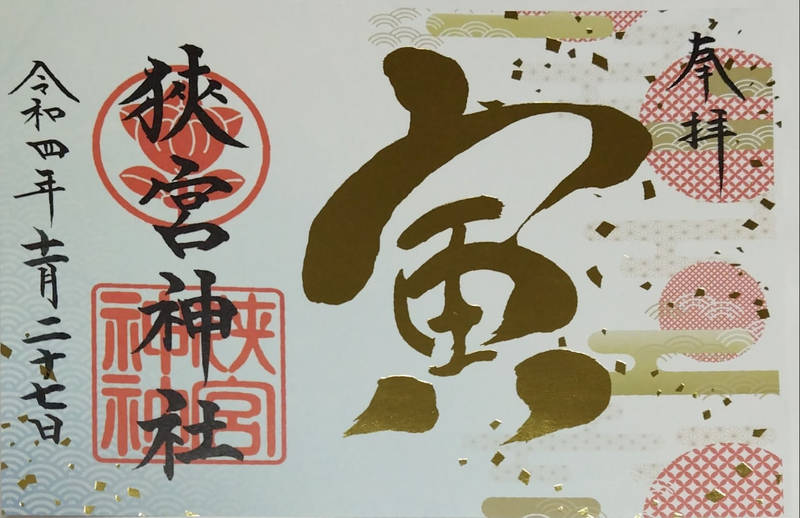 奉拝
寅
狹宮神社
狭宮
神社
令和四年十一月二十七日